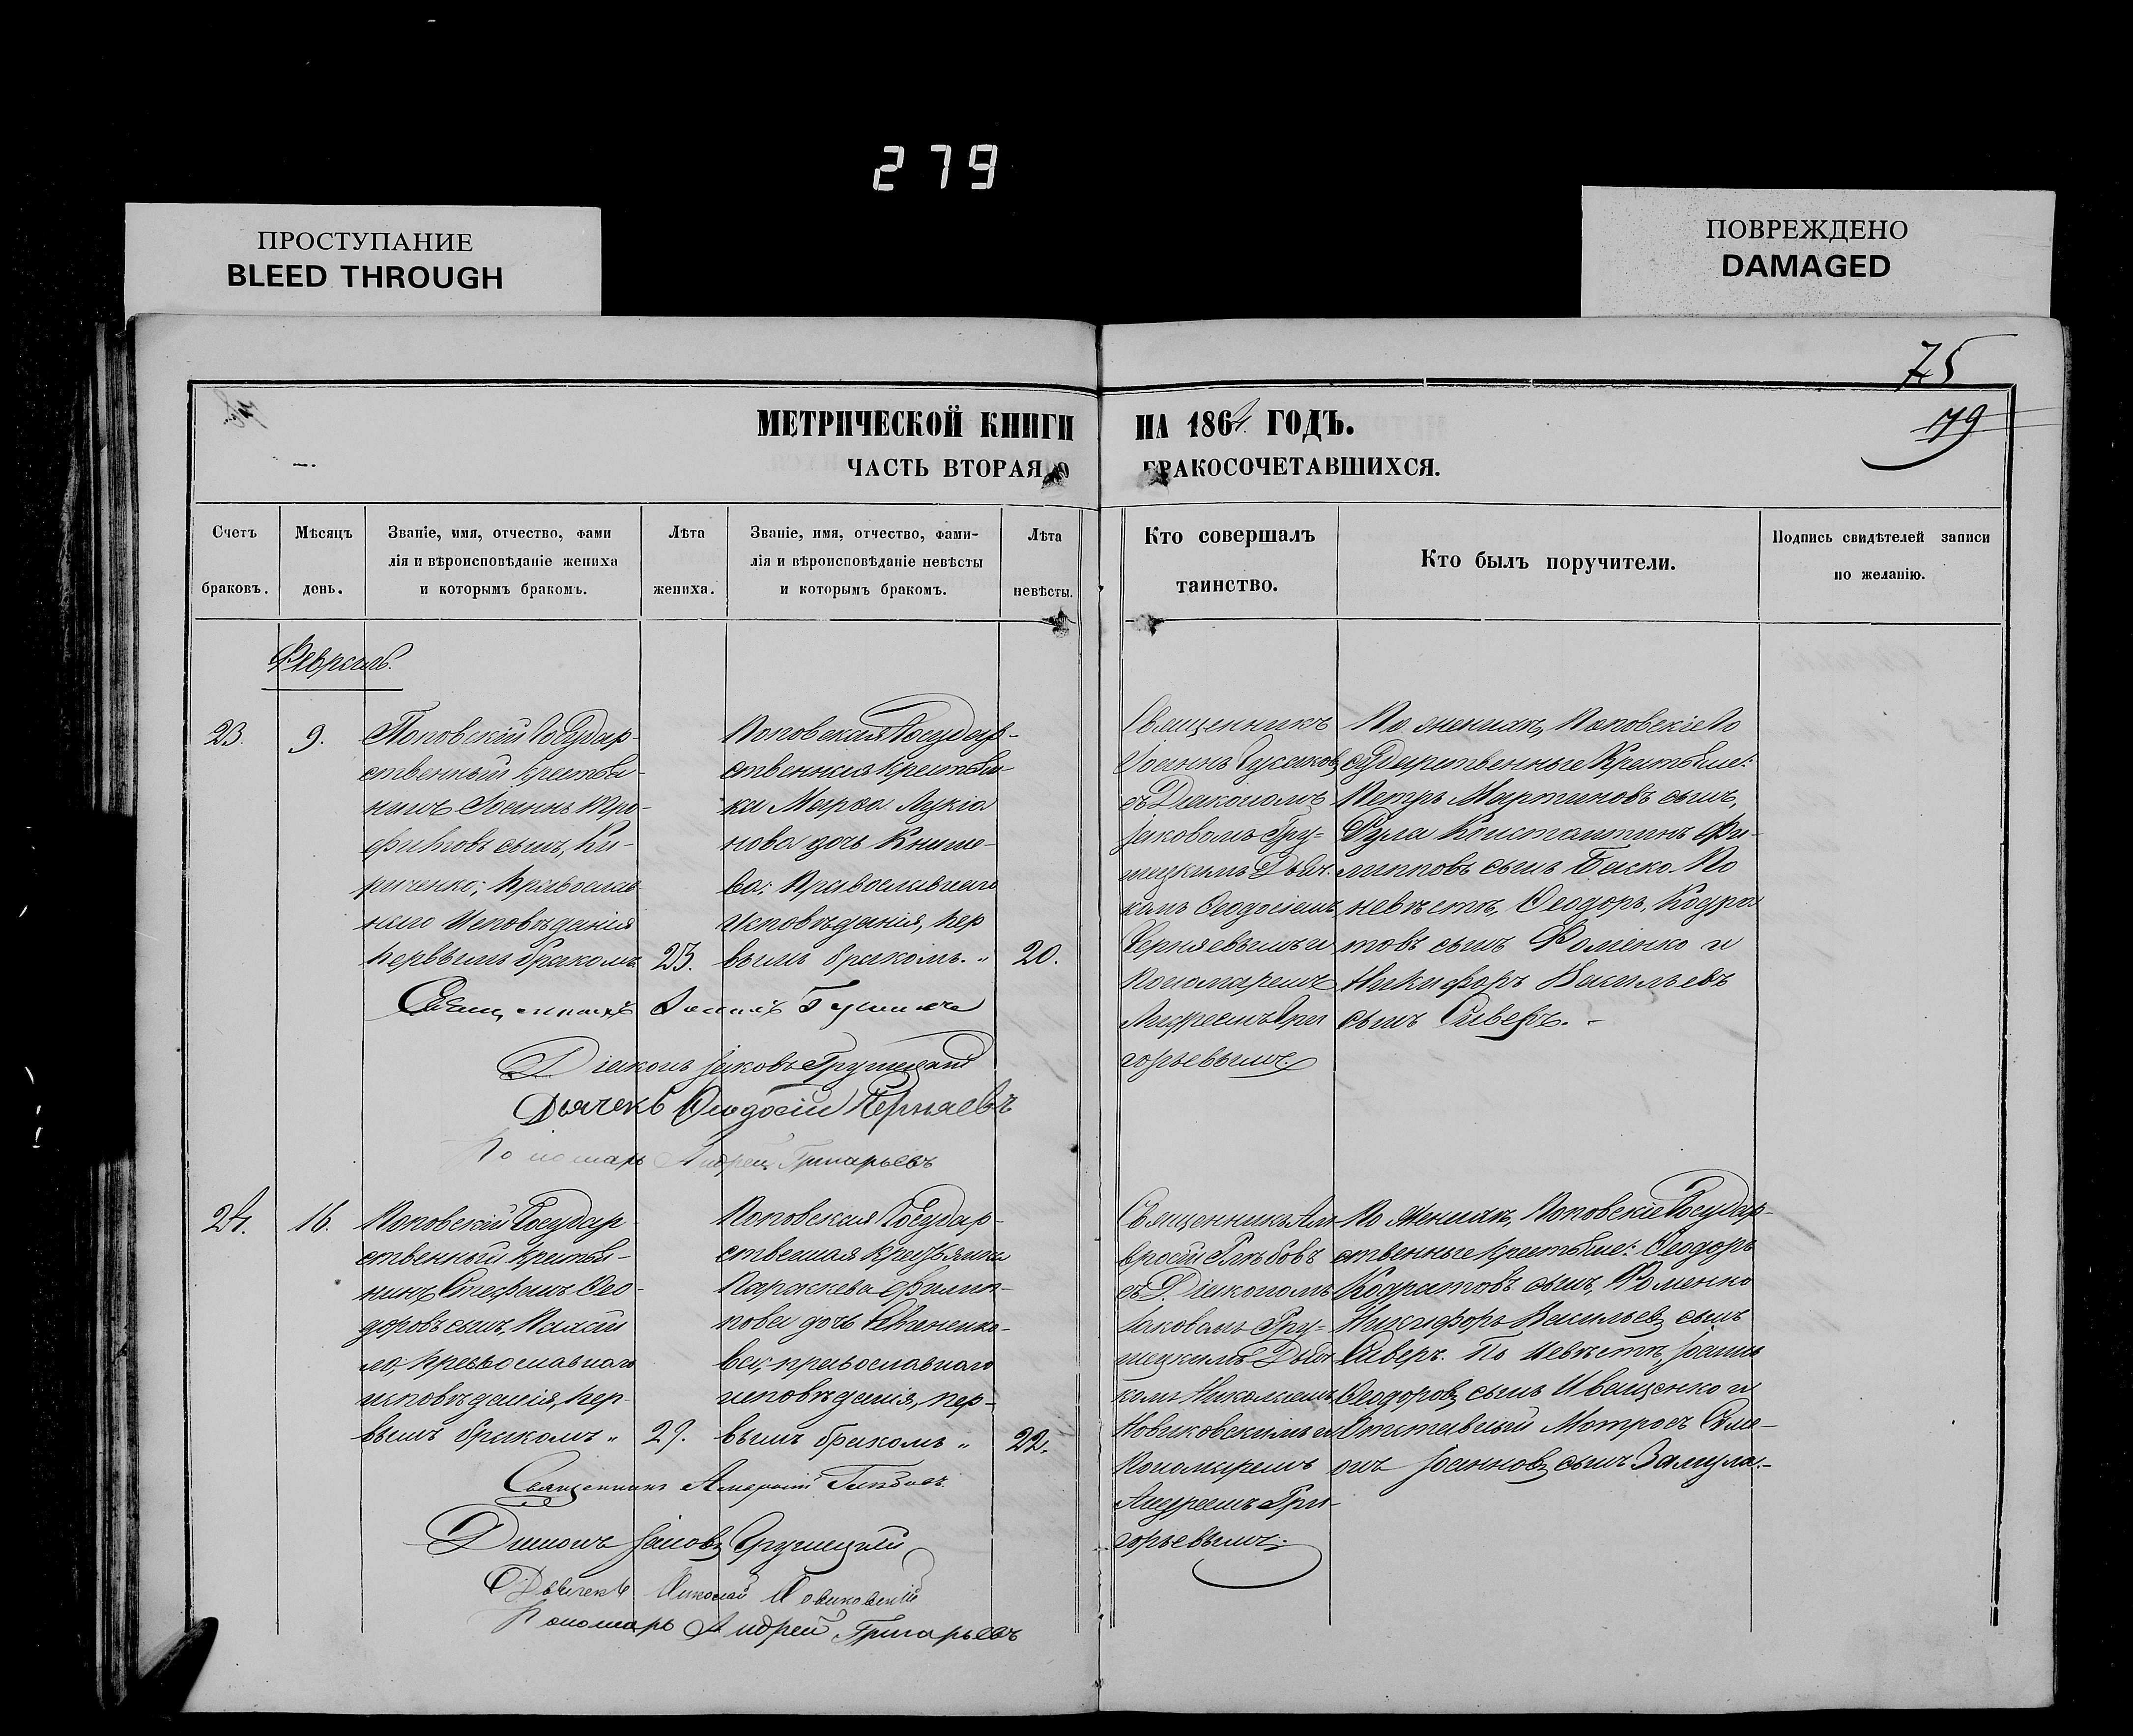 279
ПРОСТУПАНИЕ
BLEED THROUGH
ПОВРЕЖДЕНО
DAMAGED
75
79
МЕТРИЧЕСКОЙ КНИГИ НА 1864 ГОДЪ.
ЧАСТЬ ВТОРАЯ, О БРАКОСОЧЕТАВШИХСЯ.
Счетъ
браковъ.
Мѣсяцъ
день.
Званіе, имя, отчество, фами
лія и вѣроисповѣданіе жениха
и которымъ бракомъ.
Лѣта
жениха.
Званіе, имя, отчество, фами-
лія и вѣроисповѣданіе невѣсты
и которымъ бракомъ.
Лѣта
невѣсты.
Кто совершалъ
таинство.
Кто былъ поручители.
Подпись свидѣтелей записи
по желанію.
Февраль.
23.
9.
Поповскій Государ-
ственный Крестья-
нинъ Іоаннъ Тро-
фимовъ сынъ, Ки-
риченко; Православ
наго Исповѣданія
первымъ бракомъ
25.
Поповская Государ-
ственная Крестьян
ка Марѳа Лукіа
нова дочь
ва; Православнаго
Исповѣданія, пер
вымъ бракомъ. „
20.
Священникъ
Іоаннъ
съ Діакономъ
Іаковомъ Гру=
шецкимъ Дьяч.
комъ Ѳеодосіемъ
Черняевымъ и
Пономаремъ
Андреемъ Гри
горьевымъ.
По женихѣ, Поповскіе Го
сударственные Крестьяне:
Петръ Мартиновъ сынъ,
Гула Константинъ Фи-
липповъ сынъ Баско. По
невѣстѣ, Ѳеодоръ, Кодра
товъ сынъ Фоменко и
Никифоръ Васильевъ
сынъ Сиверъ. -
Священникъ Іоаннъ
Діаконъ Іаковъ Грушецкій
Дьячекъ Ѳеодосій Черняевъ
Пономарь Андрей Григорьевъ
24.
16.
Поповскій Государ
ственный Крестья-
нинъ Стефанъ Ѳео-
доровъ сынъ,
ло; православнаго
исповѣданія, пер-
вымъ бракомъ „
27.
Поповская Государ-
ственная Крестьянка
Параскева Филип-
пова дочь
ва; православнаго
исповѣданія, пер-
вымъ бракомъ „
22.
Священникъ Ам
вросій Глѣбовъ
съ Діакономъ
Іаковомъ Гру=
шецкимъ Дьяч
комъ Николаемъ
Новиковскимъ и
Пономаремъ
Андреемъ Гри-
горьевымъ.
По Женихѣ, Поповскіе Государ-
ственные Крестьяне: Ѳеодоръ
Кодратовъ сынъ, Фоменко
Никифоръ Васильевъ сынъ
Сиверъ. По Невѣстѣ, Іоаннъ
Ѳеодоровъ сынъ Иващенко и
Отставный Матросъ Симе-
онъ Іоанновъ сынъ Замула.-
Священникъ Амвросій Глѣбовъ
Діаконъ Іаковъ Грушецкій
Дьячекъ Николай Новиковскій
Пономарь Андрей Григорьевъ